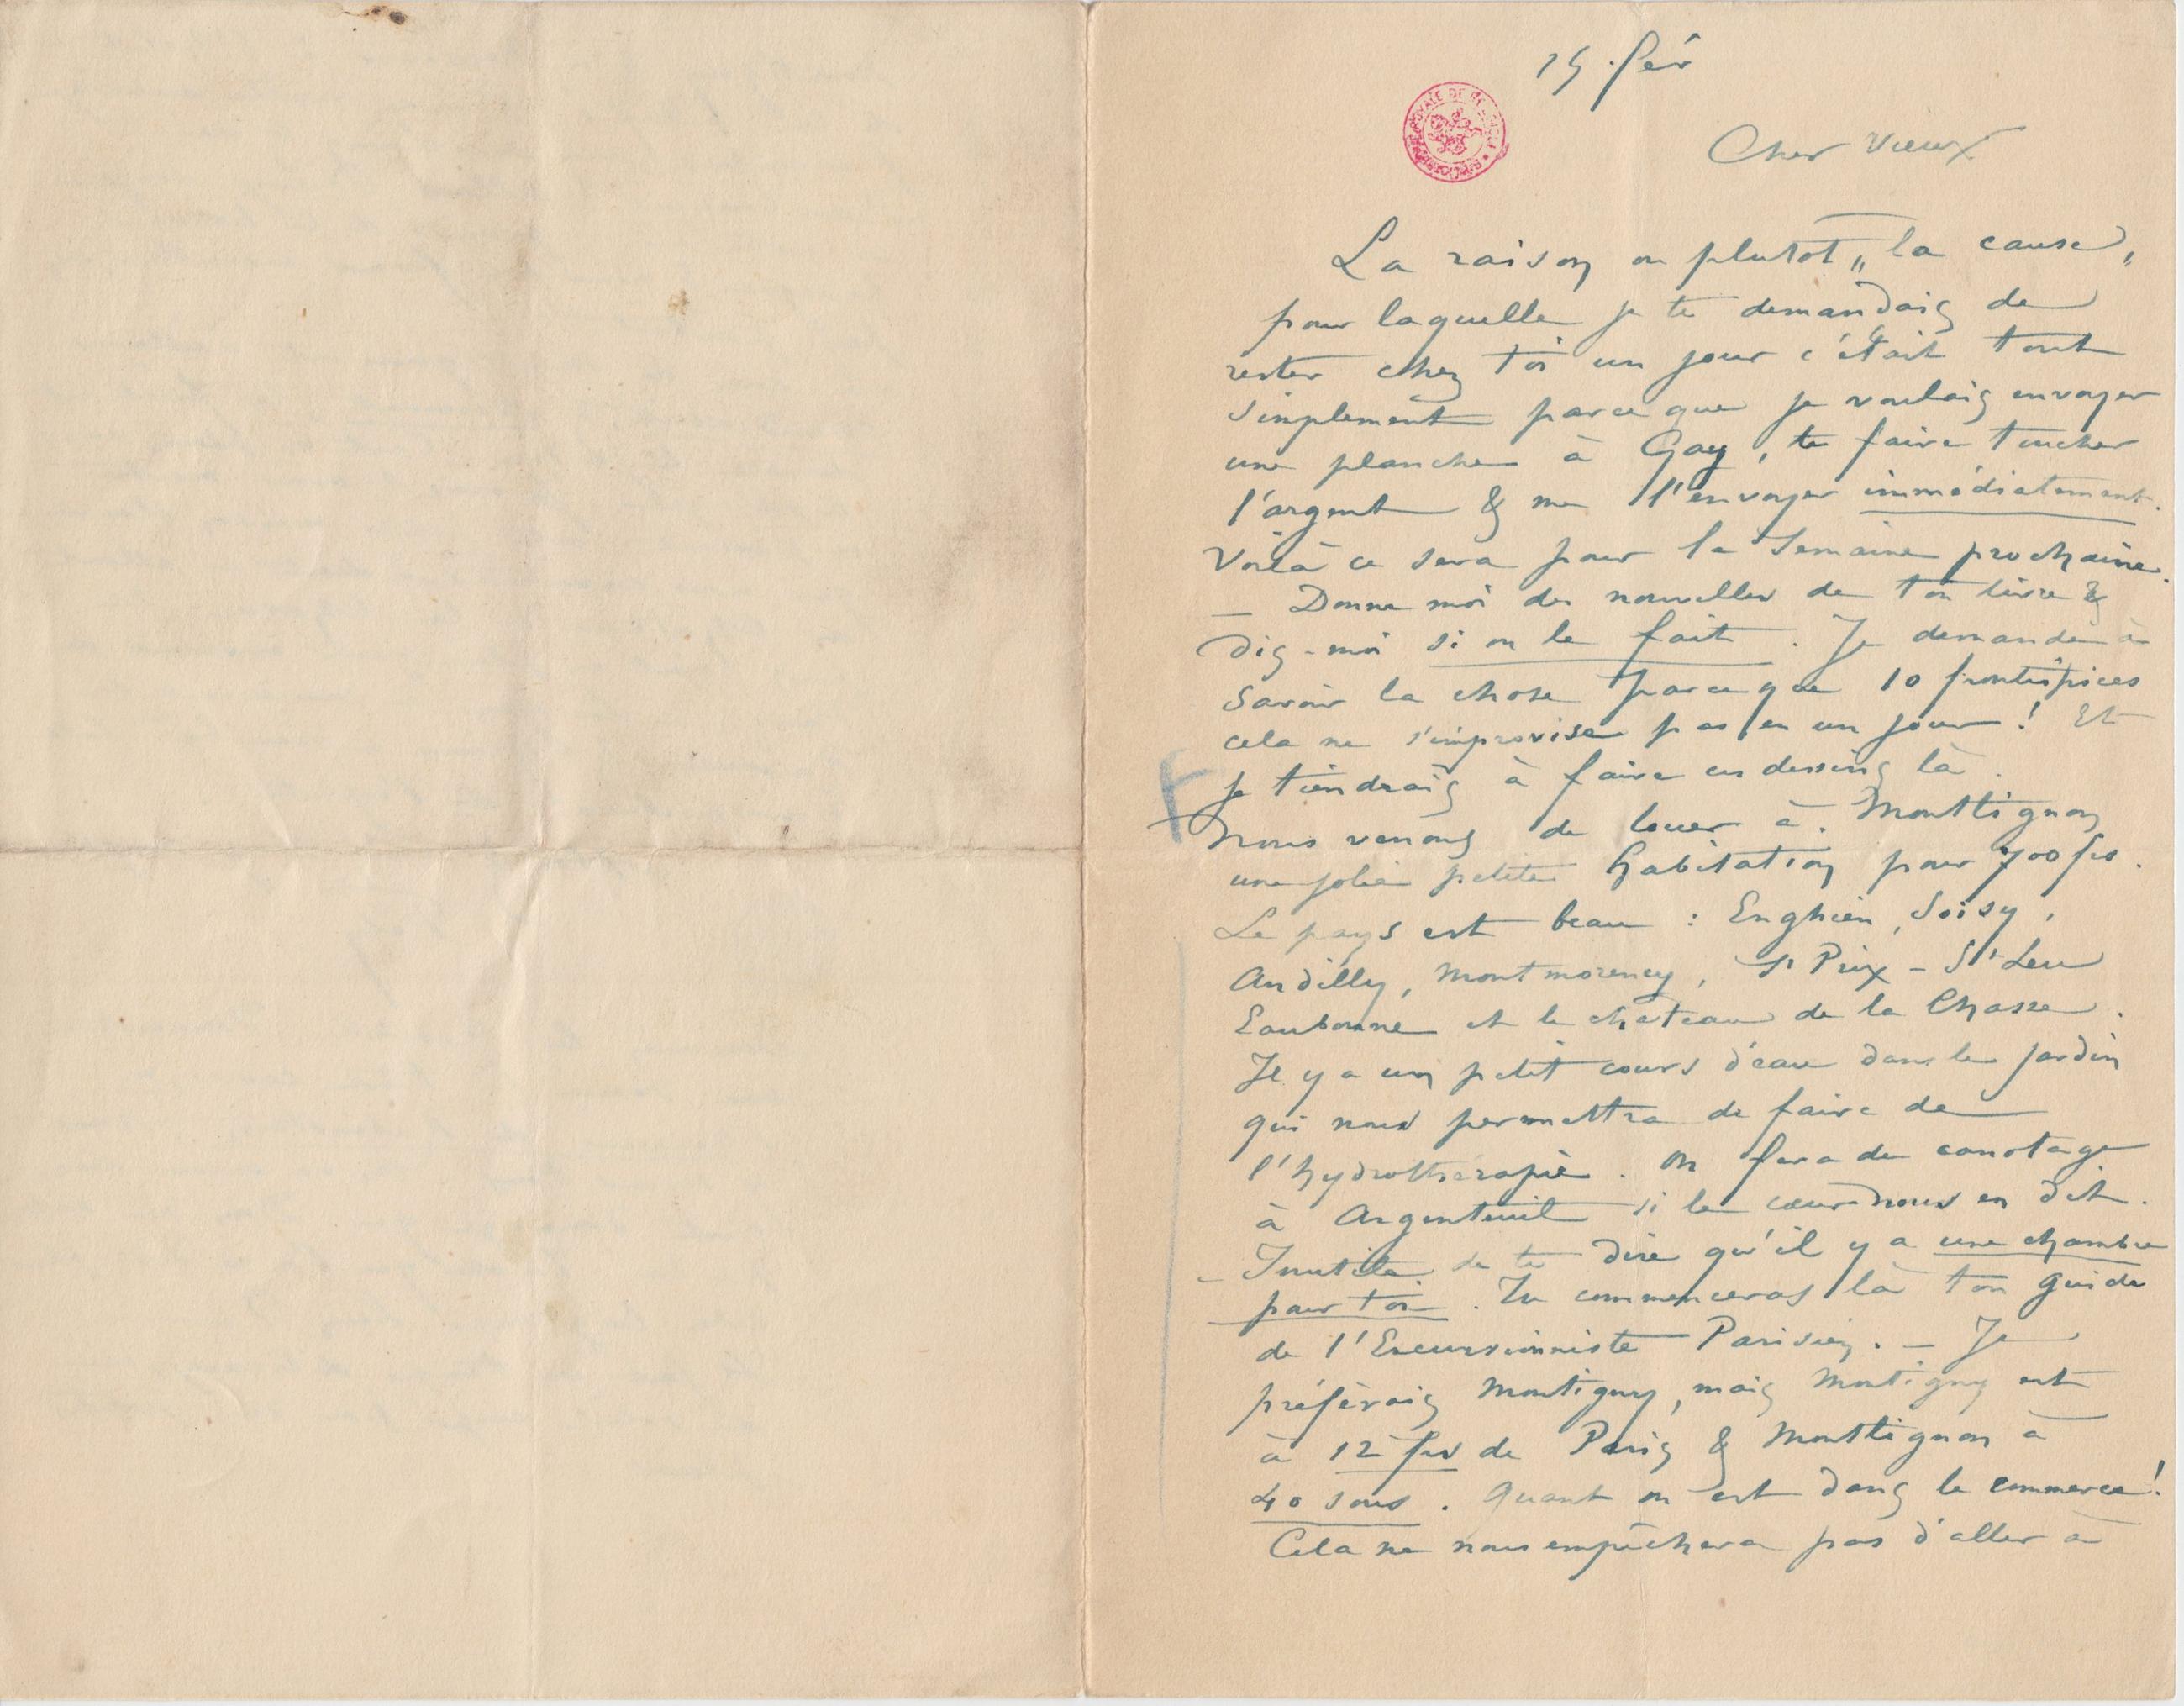 15 fév
Cher Vieux
La raison ou plutot „la cause„
pour laquelle je te demandais de
rester chez toi un jour c'était tout
simplement parce que je voulais envoyer
une planche à Gay, te faire toucher
l'argent & me l'envoyer immédiatement.
Voilà ce sera pour la semaine prochaine.
— Donne moi des nouvelles de ton livre &
dis-moi si on le fait. Je demande à
savoir la chose parceque 10 frontispices
cela ne s'improvise pas en un jour! Et
je tiendrais à faire ces dessins là.
Nous venons de louer à Montlignon
une jolie petite habitation pour 700 frs.
Le pays est beau : Enghien, Soisy,
Andilly, Montmorency, St Prix – St Leu
Eaubonne et le château de la Chasse.
Il y a un petit cours d'eau dans le jardin
qui nous permettra de faire de
l'hydrothérapie. On fera du canotage
à Argenteuil si le cœur nous en dit.
– Inutile de te dire qu'il y a une chambre
pour toi. Tu commenceras là ton guide
de l'Excursionniste Parisien. — Je
préférais Montigny, mais Montigny est
à 12 frs de Paris & Montlignon à
40 sous. Quant on est dans le commerce!
Cela ne nous empêchera pas d'aller à